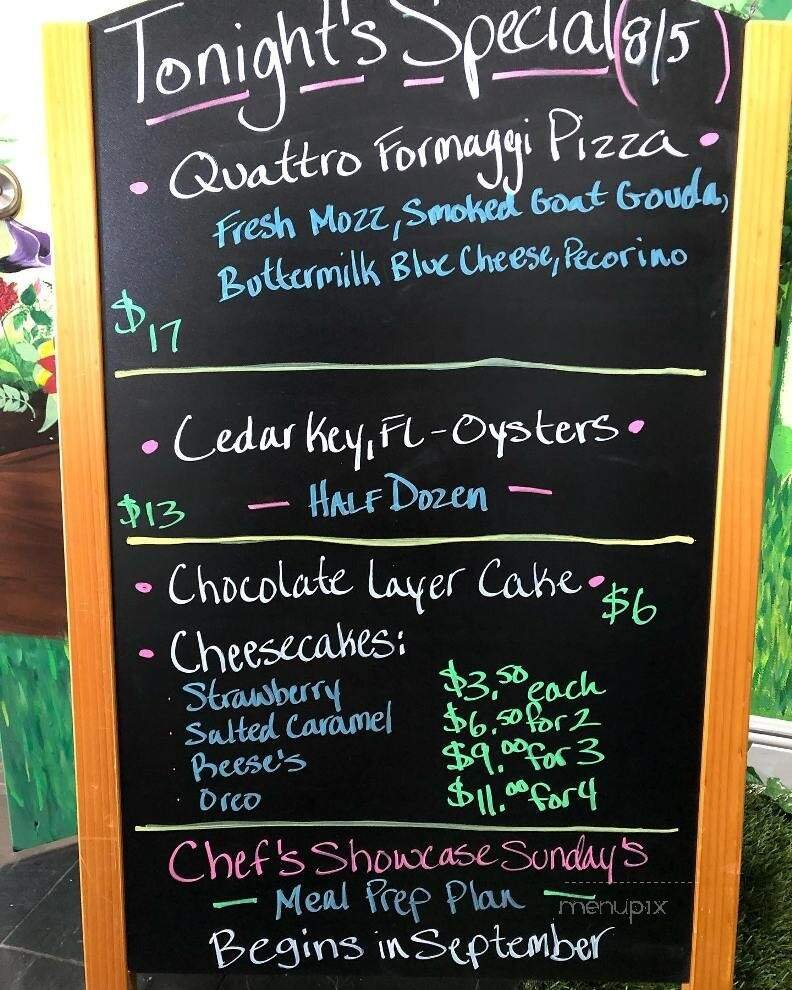 Tonight's Special (8/5)
• Quattro Formaggi Pizza •
Fresh Mozz, Smoked Goat Gouda,
Buttermilk Blue Cheese, Pecorino
$17
• Cedar Key, FL - Oysters •
$13 — Half Dozen —
• Chocolate Layer Cake • $6
• Cheesecakes:
· Strawberry $3.50 each
· Salted Caramel $6.50 for 2
· Reese's $9.00 for 3
· Oreo $11.00 for 4
Chef's Showcase Sunday's
— Meal Prep Plan —
menupix
Begins in September